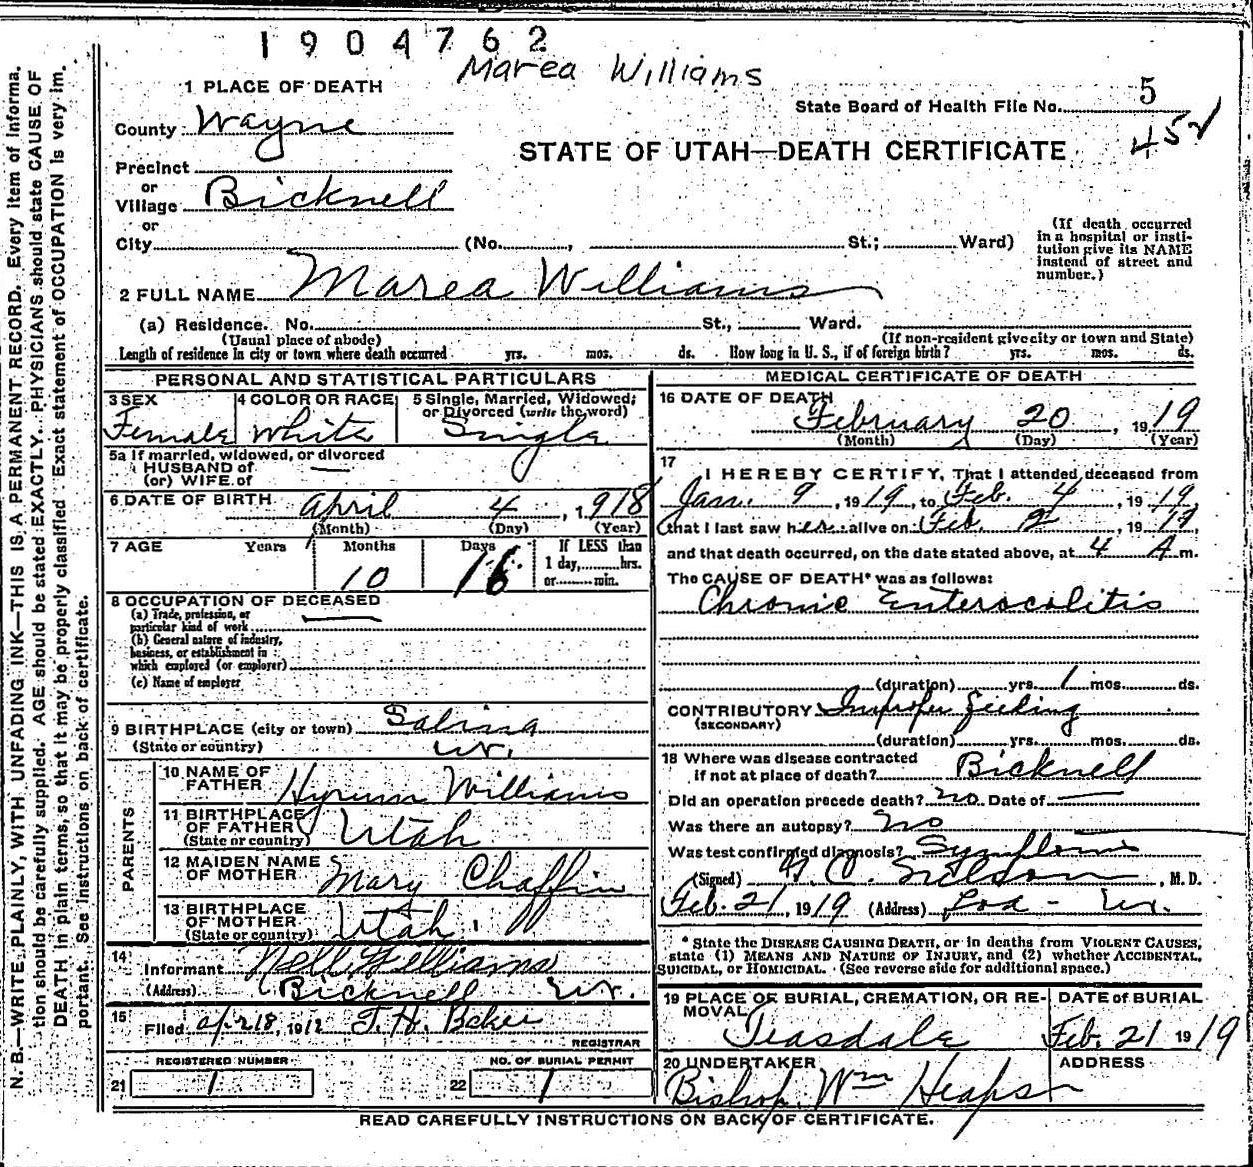 1904762
Marea Williams
1 PLACE OF DEATH
State Board of Health File No. 5
County Wayne
452
STATE OF UTAH—DEATH CERTIFICATE
Precinct
or
Village Bicknell
or
City (No. , St.; Ward)
(If death occurred in a hospital or insti-
tution give its NAME instead of street and number.)
2 FULL NAME Marea Williams
(a) Residence. No. St., Ward.
(Usual place of abode) (If non-resident give city or town and State)
Length of residence in city or town where death occurred yrs. mos. ds. How long in U. S., if of foreign birth? yrs. mos. ds.
PERSONAL AND STATISTICAL PARTICULARS
3 SEX Female
4 COLOR OR RACE White
5 Single, Married, Widowed, or Divorced (write the word) Single
5a If married, widowed, or divorced
HUSBAND of
(or) WIFE of —
6 DATE OF BIRTH April 4, 1918
(Month) (Day) (Year)
7 AGE Years Months 10 Days 16 If LESS than 1 day, hrs. or min.
8 OCCUPATION OF DECEASED
(a) Trade, profession, or
particular kind of work —
(b) General nature of industry,
business, or establishment in
which employed (or employer)
(c) Name of employer
9 BIRTHPLACE (city or town) Salina
(State or country) Ut.
PARENTS
10 NAME OF FATHER Hyrum Williams
11 BIRTHPLACE OF FATHER (State or country) Utah
12 MAIDEN NAME OF MOTHER Mary Chaffin
13 BIRTHPLACE OF MOTHER (State or country) Utah
14 Informant Nell Williams
(Address) Bicknell Ut.
15 Filed Apr 18, 191 T. H. Baker
REGISTRAR
REGISTERED NUMBER
21 1
NO. OF BURIAL PERMIT
22 1
MEDICAL CERTIFICATE OF DEATH
16 DATE OF DEATH February 20, 1919
(Month) (Day) (Year)
17 I HEREBY CERTIFY, That I attended deceased from
Jan. 9, 1919, to Feb. 4, 1919
that I last saw her alive on Feb. 2, 1919
and that death occurred, on the date stated above, at 4 A m.
The CAUSE OF DEATH* was as follows:
Chronic Enterocolitis
(duration) yrs. 1 mos. ds.
CONTRIBUTORY Improper feeding
(SECONDARY)
(duration) yrs. mos. ds.
18 Where was disease contracted
if not at place of death? Bicknell
Did an operation precede death? no Date of —
Was there an autopsy? No
Was test confirmed diagnosis? Symptoms
(Signed) , M. D.
Feb. 21, 1919 (Address) Loa - Ut.
* State the DISEASE CAUSING DEATH, or in deaths from VIOLENT CAUSES,
state (1) MEANS AND NATURE OF INJURY, and (2) whether ACCIDENTAL,
SUICIDAL, or HOMICIDAL. (See reverse side for additional space.)
19 PLACE OF BURIAL, CREMATION, OR RE-
MOVAL Teasdale
DATE of BURIAL Feb. 21 1919
20 UNDERTAKER Bishop Wm Heaps
ADDRESS
READ CAREFULLY INSTRUCTIONS ON BACK OF CERTIFICATE.
N. B.—WRITE PLAINLY, WITH UNFADING INK—THIS IS A PERMANENT RECORD. Every item of informa-
tion should be carefully supplied. AGE should be stated EXACTLY. PHYSICIANS should state CAUSE OF
DEATH in plain terms, so that it may be properly classified. Exact statement of OCCUPATION is very im-
portant. See instructions on back of certificate.